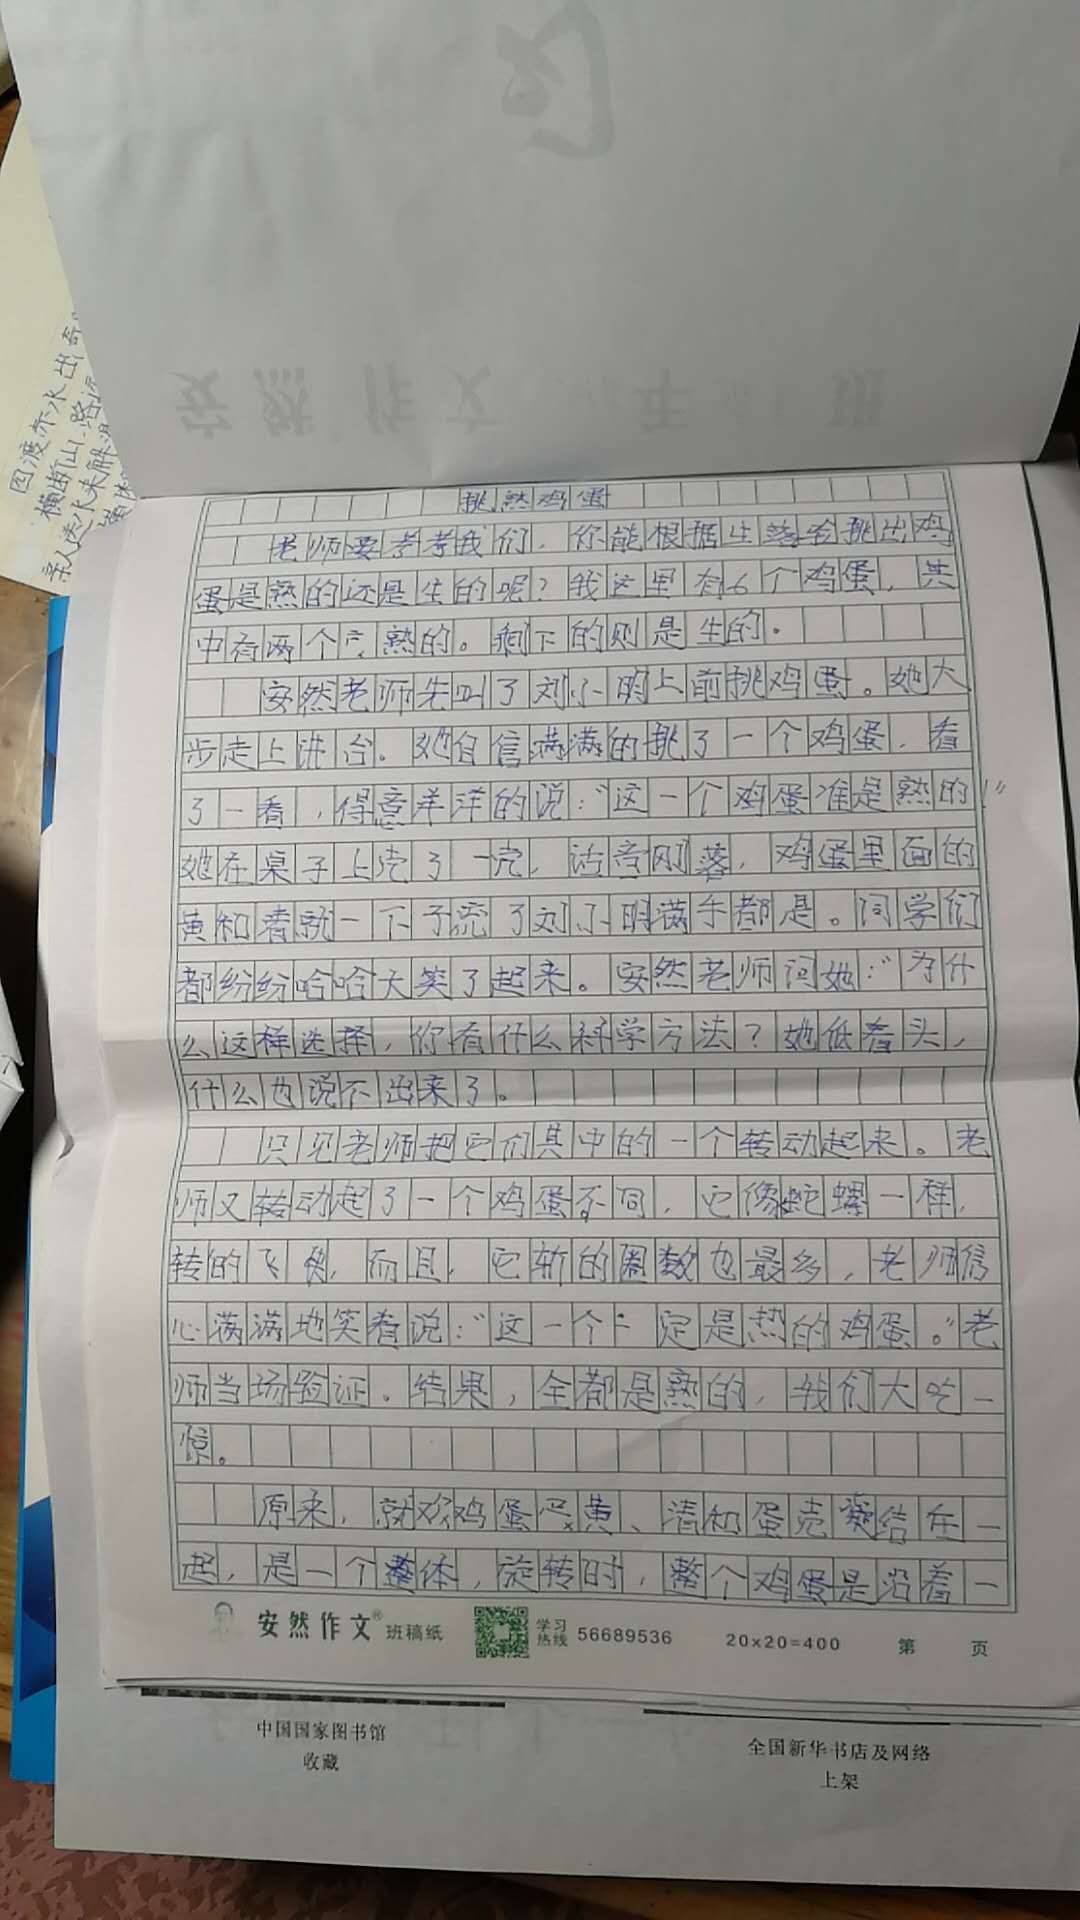 因渡赤水出奇
横断山,路
亲人送水来解
挑熟鸡蛋
老师要考考我们,你能根据生 挑出鸡
蛋是熟的还是生的呢?我这里有6个鸡蛋,其
中有两个 熟的。剩下的则是生的。
安然老师先叫了刘小明上前挑鸡蛋。她大
步走上讲台。她自信满满的挑了一个鸡蛋,看
了一看,得意洋洋的说:“这一个鸡蛋准是熟的!”
她在桌子上壳了一壳,话音刚落,鸡蛋里面的
黄和青就一下子流了刘小明满手都是。同学们
都纷纷哈哈大笑了起来。安然老师问她:“为什
么这样选择,你有什么科学方法?她低着头,
什么也说不出来了。
只见老师把它们其中的一个转动起来。老
师又转动起了一个鸡蛋不同,它像蛇螺一样,
转的飞快,而且,它斩的圈数也最多,老师信
心满满地笑着说:“这一个一定是热的鸡蛋。”老
师当场验证。结果,全都是熟的,我们大吃一
惊。
原来,就 鸡蛋 黄、清和蛋壳凝结在一
起,是一个整体,旋转时,整个鸡蛋是沿着一
安然作文® 班稿纸 学习热线 56689536 20×20=400 第 页
中国国家图书馆
收藏
全国新华书店及网络
上架